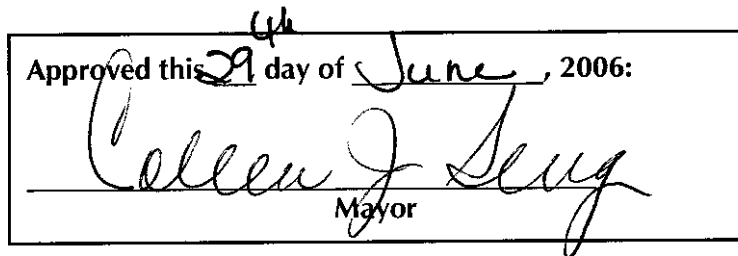 Approved this 29th day of June, 2006:
Coleen J Seng
Mayor